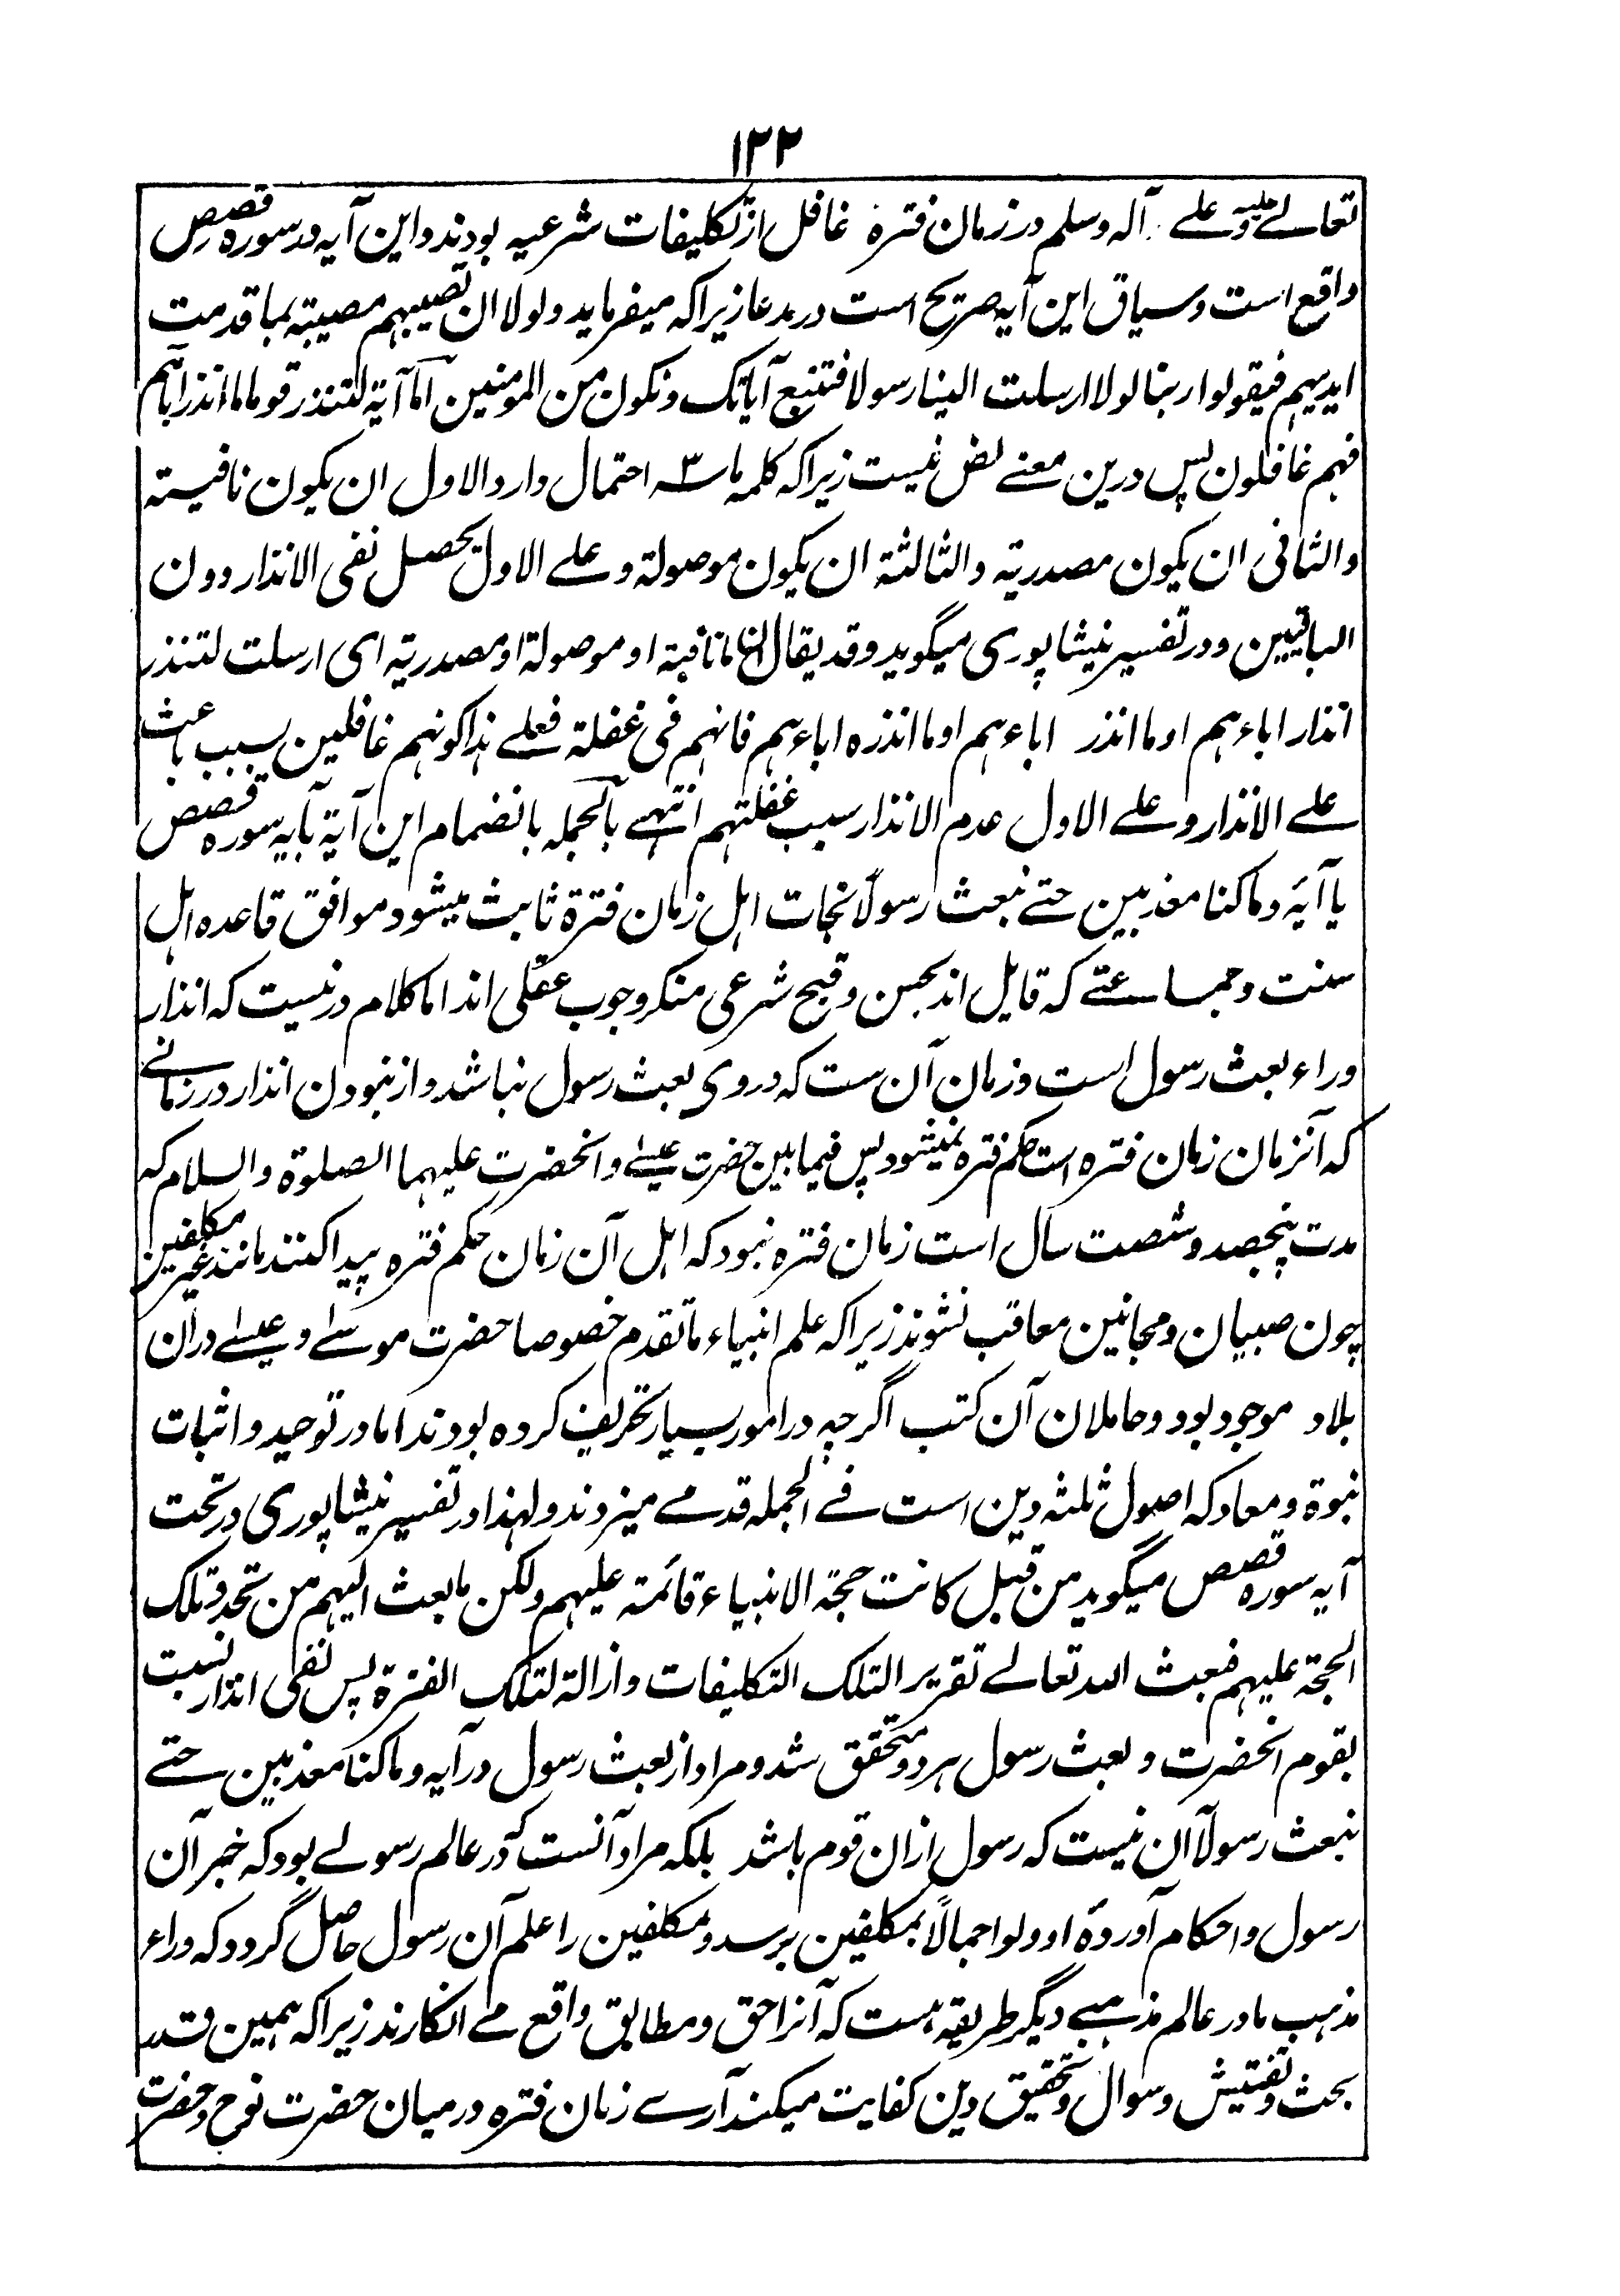 ۱۲۲
تعالے علیہ وعلے آلہ وسلم در زمان فترہ غافل از تکلیفات شرعیہ بودند واین آیہ در سورہ قصص
واقع است وسیاق این آیہ صریح است در مدعا زیرا کہ میفرماید ولولا ان تصیبہم مصیبتہ بما قدمت
ایدیہم فیقولوا ربنا لولا ارسلت الینا رسولا فنتبع آیاتک ونکون من المومنین اما آیۃ لتنذر قوما ما انذر اباؤہم
فہم غافلون پس درین معنے نص نیست زیرا کہ کلمہ ما سہ احتمال دارد الاول ان یکون نافیتہ
والثانی ان یکون مصدریتہ والثالثۃ ان یکون موصولۃ وعلے الاول یحصل نفی الانذار دون
الباقیین ودر تفسیر نیشاپوری میگوید وقد یقال ان ما نافیۃ او موصولۃ او مصدریتہ ای ارسلت لتنذر
انذار اباءہم او ما انذر اباءہم او ما انذرہ اباءہم فانہم فی غفلۃ فعلے ہذا کونہم غافلین سبب باعث
علے الانذار وعلے الاول عدم الانذار سبب غفلتہم انتہے بالجملہ بانضمام این آیۃ بآیہ سورہ قصص
یا آیۂ وما کنا معذبین حتے نبعث رسولاً نجات اہل زمان فترۃ ثابت میشود موافق قاعدہ اہل
سنت وجماعتے کہ قایل اند بحسن وقبح شرعی منکر وجوب عقلی اند اما کلام درنیست کہ انذار
وراء بعث رسول است وزمان آن ست کہ دروی بعث رسول نباشد واز نبودن انذار در زمانے
کہ آنزمان زمان فترہ است حکم فترہ نمیشود پس فیما بین حضرت عیسے وانحضرت علیہما الصلوۃ والسلام کہ
مدت پنجصد وشصت سال است زمان فترہ نبود کہ اہل آن زمان حکم فترہ پیدا کنند مانند غیر مکلفین
چون صبیان ومجانین معاقب نشوند زیرا کہ علم انبیاء ما تقدم خصوصا حضرت موسے وعیسے دران
بلاد موجود بود وحاملان آن کتب اگرچہ در امور بسیار تحریف کردہ بودند اما در توحید واثبات
نبوۃ ومعاد کہ اصول ثلثہ دین است فے الجملہ قدمے میزدند ولہذا در تفسیر نیشاپوری در تحت
آیہ سورہ قصص میگوید من قبل کانت حجۃ الانبیاء قائمۃ علیہم ولکن ما بعث الیہم من تجدد تلک
الحجۃ علیہم فبعث اللہ تعالے تقریر التلک التکلیفات وازالۃ لتلک الفترۃ پس نفی انذار نسبت
بقوم انحضرت وبعث رسول ہر دو متحقق شد ومراد از بعث رسول در آیہ وما کنا معذبین حتے
نبعث رسولاً آن نیست کہ رسول ازان قوم باشد بلکہ مراد آنست کہ در عالم رسولے بود کہ خبر آن
رسول واحکام آوردۂ او ولو اجمالاً بمکلفین برسد ومکلفین را علم آن رسول حاصل گردد کہ وراء
مذہب ما در عالم مذہبے دیگر طریقہ ہست کہ آنرا حق ومطابق واقع مے انکارند زیرا کہ ہمین قدر
بحث وتفتیش وسوال وتحقیق دین کفایت میکند آرے زمان فترہ درمیان حضرت نوح وحضرت